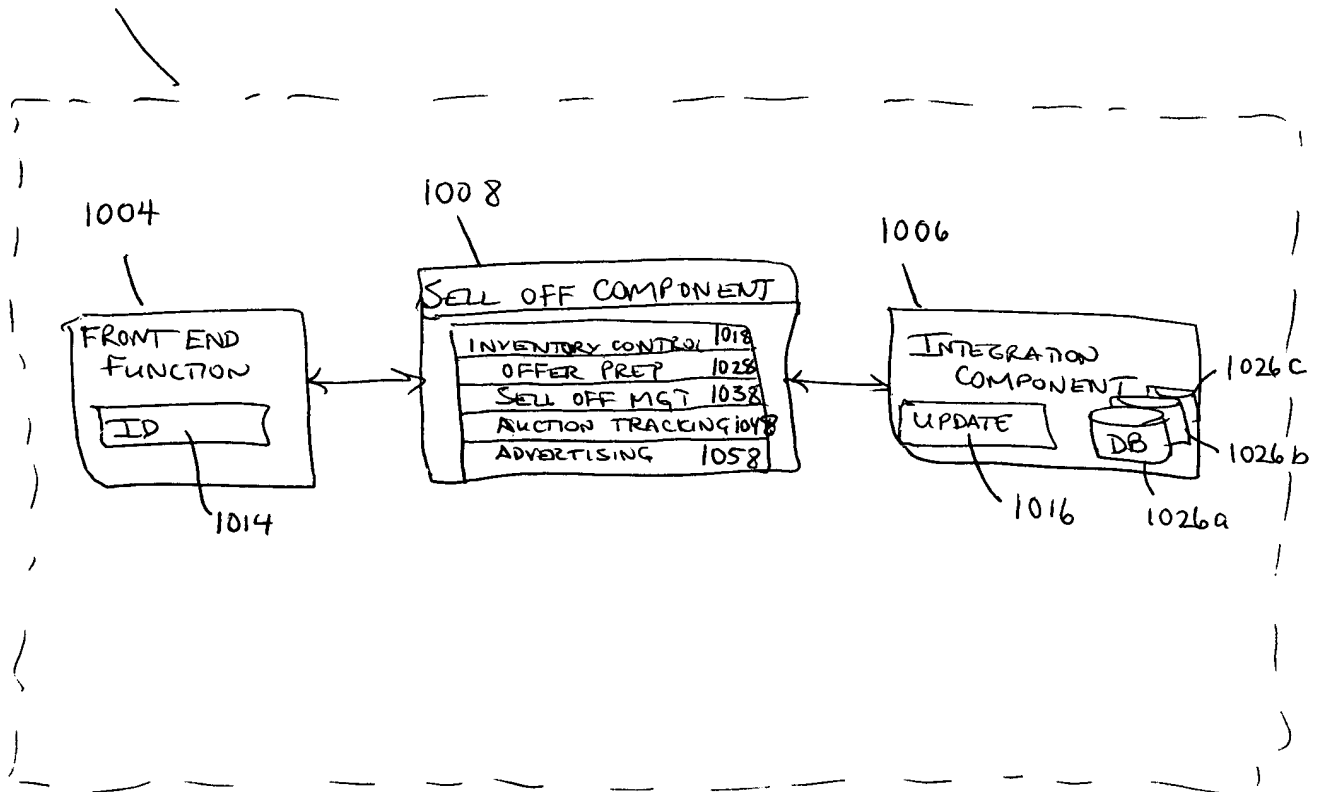 1004
FRONT END
FUNCTION
ID
1014
1008
SELL OFF COMPONENT
INVENTORY CONTROL 1018
OFFER PREP 1028
SELL OFF MGT 1038
AUCTION TRACKING 1048
ADVERTISING 1058
1006
INTEGRATION
COMPONENT
UPDATE
DB
1016
1026a
1026b
1026c